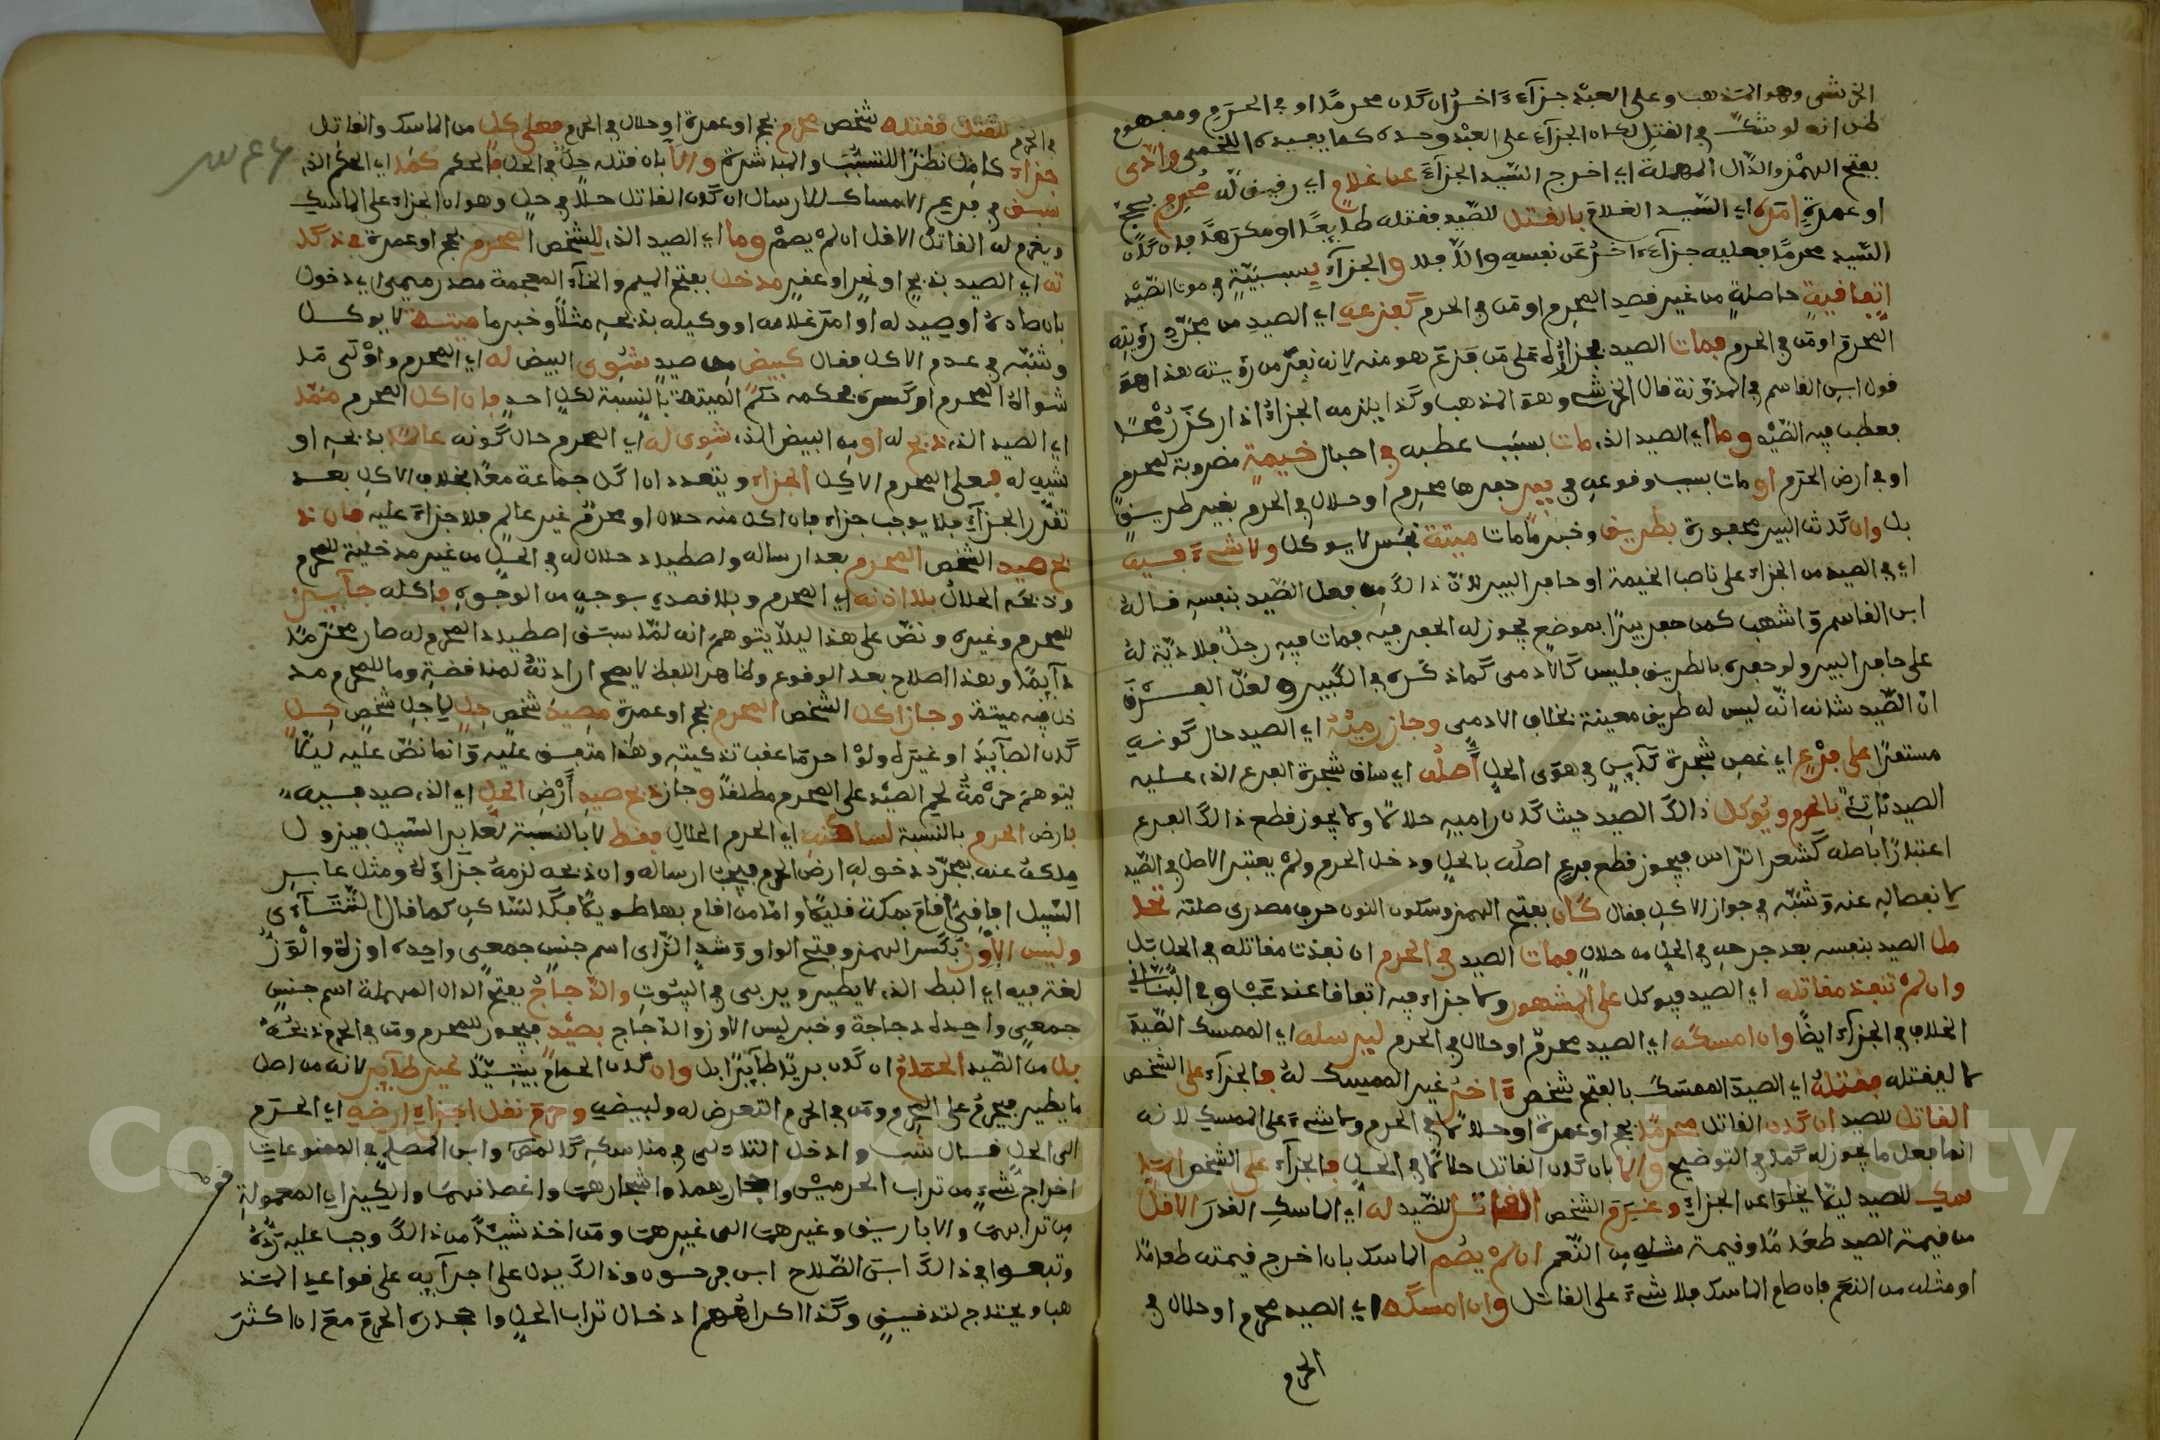 الخرشي وهو المذهب وعلى العبد جزاء اخر ان كان محرما او في الحرم ومفهوم
ظن انه لو شك في القتل لكان الجزاء على العبد وحده كما يفيده اللخمي وادى
بفتح الهمز والدال المهملة اي اخرج السيد الجزاء عن غلام اي رفيق له محرم بحج
او عمرة امره اي السيد الغلام بالقتل للصيد فقتله طايعا او مكرها فان كان
السيد محرما فعليه جزاء اخر عن نفسه والا فلا والجزاء بسببية في موت الصيد
اتفاقية حاصلة من غير قصد المحرم او من في الحرم كفزعه اي الصيد من مجرد رؤيته
المحرم او من في الحرم فمات الصيد فجزاؤه على من فزع هو منه لانه نفر من رؤيته هذا هو
قول ابن القاسم في المدونة قال الخرشي وهو المذهب وكذا يلزمه الجزاء اذا ركز رمحا
فعطب فيه الصيد وما اي الصيد الذي مات بسبب عطبه في احبال خيمة مضروبة لمحرم
او في ارض الحرم او مات بسبب وقوعه في بير حفرها محرم او حلال في الحرم بغير طريق
بل وان كانت البير محفورة بطريق وخبر ما مات ميتة نجس لا يوكل ولا شيء فيه
اي في الصيد من الجزاء على ناصب الخيمة او حافر البير لان ذالك من فعل الصيد بنفسه قاله
ابن القاسم واشهب كمن حفر بيرا بموضع يجوز له الحفر فيه فمات فيه رجل فلا دية له
على حافر البير ولو حفره بالطريق فليس كالادمي كما ذكره في الكبير ولعل الفرق
ان الصيد شانه انه ليس له طريق معينة بخلاف الادمي وجاز رميه اي الصيد حال كونه
مستقرا على فرع اي غصن شجرة كاين في هوى الحل اصله اي ساق شجرة الفرع الذي عليه
الصيد ثابت بالحرم ويوكل ذالك الصيد حيث كان راميه حلالا وكما يجوز قطع ذالك الفرع
اعتبارا باصله كشعر الراس فيجوز قطع فرع اصله بالحل ودخل الحرم ولم يعتبر الاصل في الصيد
لانفصاله عنه وشبه في جواز الاكل فقال كان بفتح الهمز وسكون النون حرف مصدري صلته تحا
مل الصيد بنفسه بعد جرحه في الحل من حلال فمات الصيد في الحرم ان نفذت مقاتله في الحل بل
وان لم تنفذ مقاتله اي الصيد فيوكل على المشهور ولا جزاء فيه اتفاقا عند عب وفي البناني
الخلاف في الجزاء ايضا وان امسكه اي الصيد محرم او حلال في الحرم ليرسله اي الممسك الصيد
لا ليقتله فقتله اي الصيد الممسك بالفتح شخص اخر غير الممسك له فالجزاء على الشخص
القاتل للصيد ان كان القاتل محرما بحج او عمرة او حلالا في الحرم ولا شيء على الممسك لانه
انما فعل ما يجوز له كما في التوضيح والا بان كان القاتل حلالا في الحل فالجزاء على الشخص الما
سك للصيد ليلا يخلو عن الجزاء وغرم الشخص القاتل للصيد له اي الماسك القدر الاقل
من قيمة الصيد طعاما وقيمة مثله من النعم ان لم يصم الماسك بان اخرج قيمته طعاما
او مثله من النعم فان صام الماسك فلا شيء على القاتل وان امسكه اي الصيد محرم او حلال في
الحرم
في الحرم للقتل فقتله شخص محرم بحج او عمرة او حلال في الحرم فعلى كل من الماسك والقاتل
جزاء كامل نظرا للتسبب والمباشرة والا بان قتله حل في الحل فالحكم كما اي الحكم الذي
سبق في فريع الامساك للارسال ان كان القاتل حلالا في حل وهو ان الجزاء على الماسك
ويغرم له القاتل الاقل ان لم يصم وما اي الصيد الذي للشخص المحرم بحج او عمرة في ذكا
ته اي الصيد بذبح او نحر او عقر مدخل بفتح الميم والخاء المعجمة مصدر ميمي اي دخول
بان صاده او صيد له او امر غلامه او وكيله بذبحه مثلا وخبر ما ميتة لا يوكل
وشبه في عدم الاكل فقال كبيض من صيد شوى البيض له اي المحرم واولى ما
شواه المحرم او كسره فحكمه حكم الميتة بالنسبة لكل احد فان اكل المحرم مما
اي الصيد الذي ذبح له او من البيض الذي شوي له اي المحرم حال كونه عالما بذبحه او
شيه له فعلى المحرم الاكل الجزاء ويتعدد ان اكل جماعة معا بخلاف الاكل بعد
تقرر الجزاء فلا يوجب جزاء فان اكل منه حلال او محرم غير عالم فلا جزاء عليه فان ذ
بح صيد الشخص المحرم بعد ارساله واصطياد حلال له في الحل من غير مدخلية للمحرم
وذبحه الحلال بلا اذنه اي المحرم وبلا قصده بوجه من الوجوه فاكله جايز
للمحرم وغيره ونص على هذا ليلا يتوهم انه لما سبق اصطياد المحرم له صار محرما
دايما وهذا اصلاح بعد الوقوع وظاهر اللفظ لا يصح ارادته لمناقضة وما للمحرم مد
خل فيه ميتة وجاز اكل الشخص المحرم بحج او عمرة مصيد شخص حل لاجل شخص حل
كان الصايد او غيره ولو احرما عقب تذكيته وهذا متفق عليه وانما نص عليه ليلا
يتوهم حرمة لحم الصيد على المحرم مطلقا وجاز ذبح صيد ارض الحل اي الذي صيد فيه
بارض الحرم بالنسبة لساكنه اي الحرم الحلال فقط لا بالنسبة لعابر السبيل فيزول
ملكه عنه بمجرد دخوله ارض الحرم فيجب ارساله وان ذبحه لزمه جزاؤه ومثل عابر
السبيل افاقي اقام بمكة قليلا واما من اقام بها طويلا فكالساكن كما قال التتاءي
وليس الاوز بكسر الهمز وفتح الواو وشد الزاي اسم جنس جمعي واحده اوزة والوز
لغة فيه اي البط الذي لا يطير ويربى في البيوت والدجاج بفتح الدال المهملة اسم جنس
جمعي واحده دجاجة وخبر ليس الاوز والدجاج بصيد فيجوز للمحرم ومن في الحرم ذبحه
بل من الصيد الحمام ان كان بريا طايرا بل وان كان الحمام بيتيا غير طاير لانه من اصل
ما يطير فيحرم على المحرم ومن في الحرم التعرض له ولبيضه وحرم نقل اجزاء ارضه اي الحرم
الى الحل قال شب وادخل التادلي في مناسكه كالمص وابن المصلي في الممنوعات
اخراج شيء من تراب الحرمين واحجارهما واشجارهما واغصانهما والكيزان المعمولة
من ترابهما والاباريق وغيرهما الى غيرهما ومن اخذ شيئا من ذالك وجب عليه رده
وتبعوا في ذالك ابن الصلاح ابن فرحون وذالك يدل على اجرايه على قواعد المذ
هب ويحتاج لتدقيق وكذا اكراههم ادخال تراب الحل واحجاره الحرم مع ان اكثر